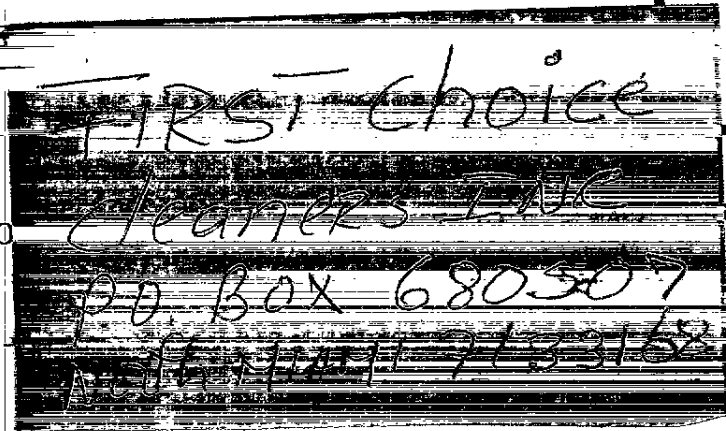 FIRST Choice
Cleaners INC
PO. BOX 680507
North MIAMI 7l 33168